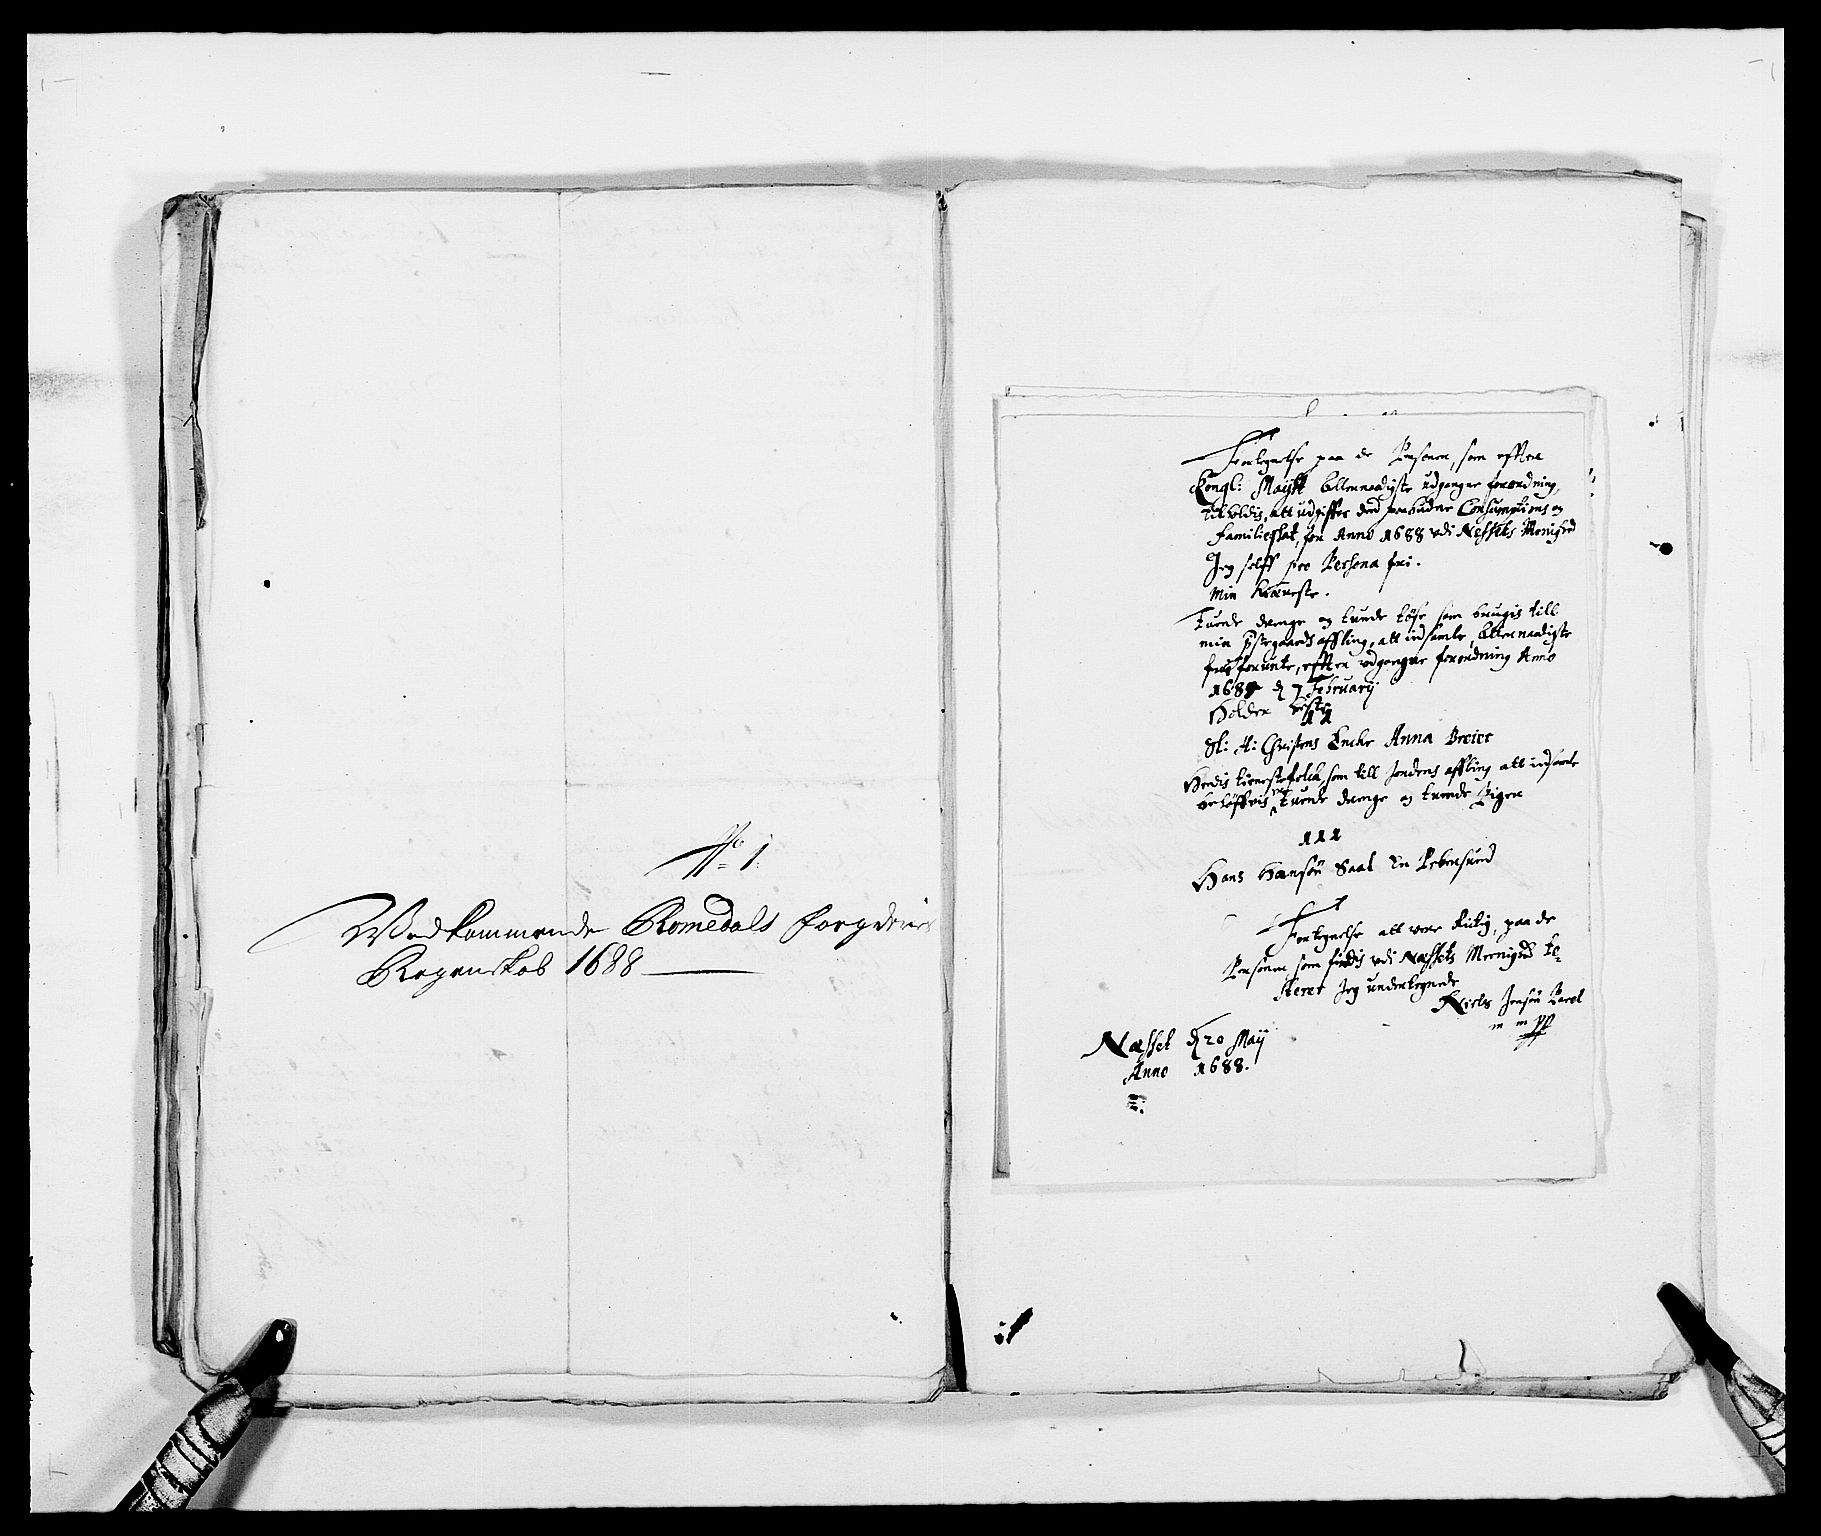 No 1.
Vedkommende Romsdals fogderies
Regenskab 1688
Fortegnelse paa de Personer, som efter
Kongl: Maystt allernaadigste udgangne forordning,
tilholdis, att udgiffve den paabudne Consumptions og
familieskat, for Anno 1688 udi Nessets Menighed
Jeg selff pro Persona fri.
Min Kiæreste.
Tuende drenge og tuende tøse som brugis till
min prstegaards affling, att indsamle, allernaadigste
forunte, efter udgangne forordning Anno
1687 d 7 February
Holder heste
11
Sl: H: Christens Encke Anna Breier
Hendis tienestefolck, som till Jordens affling att indsamle
behøffvis er tuende drenge og tuende Piger
111
Hans Hansøn Saal en Pebersuend
Fortegnelse att være Rictig, paa de
Personer som findis udi Næssets Meenighed te-
sterer Jeg undertegnede
Niels Jensøn
m m pp
Næsset d 20 Maij
Anno 1688.